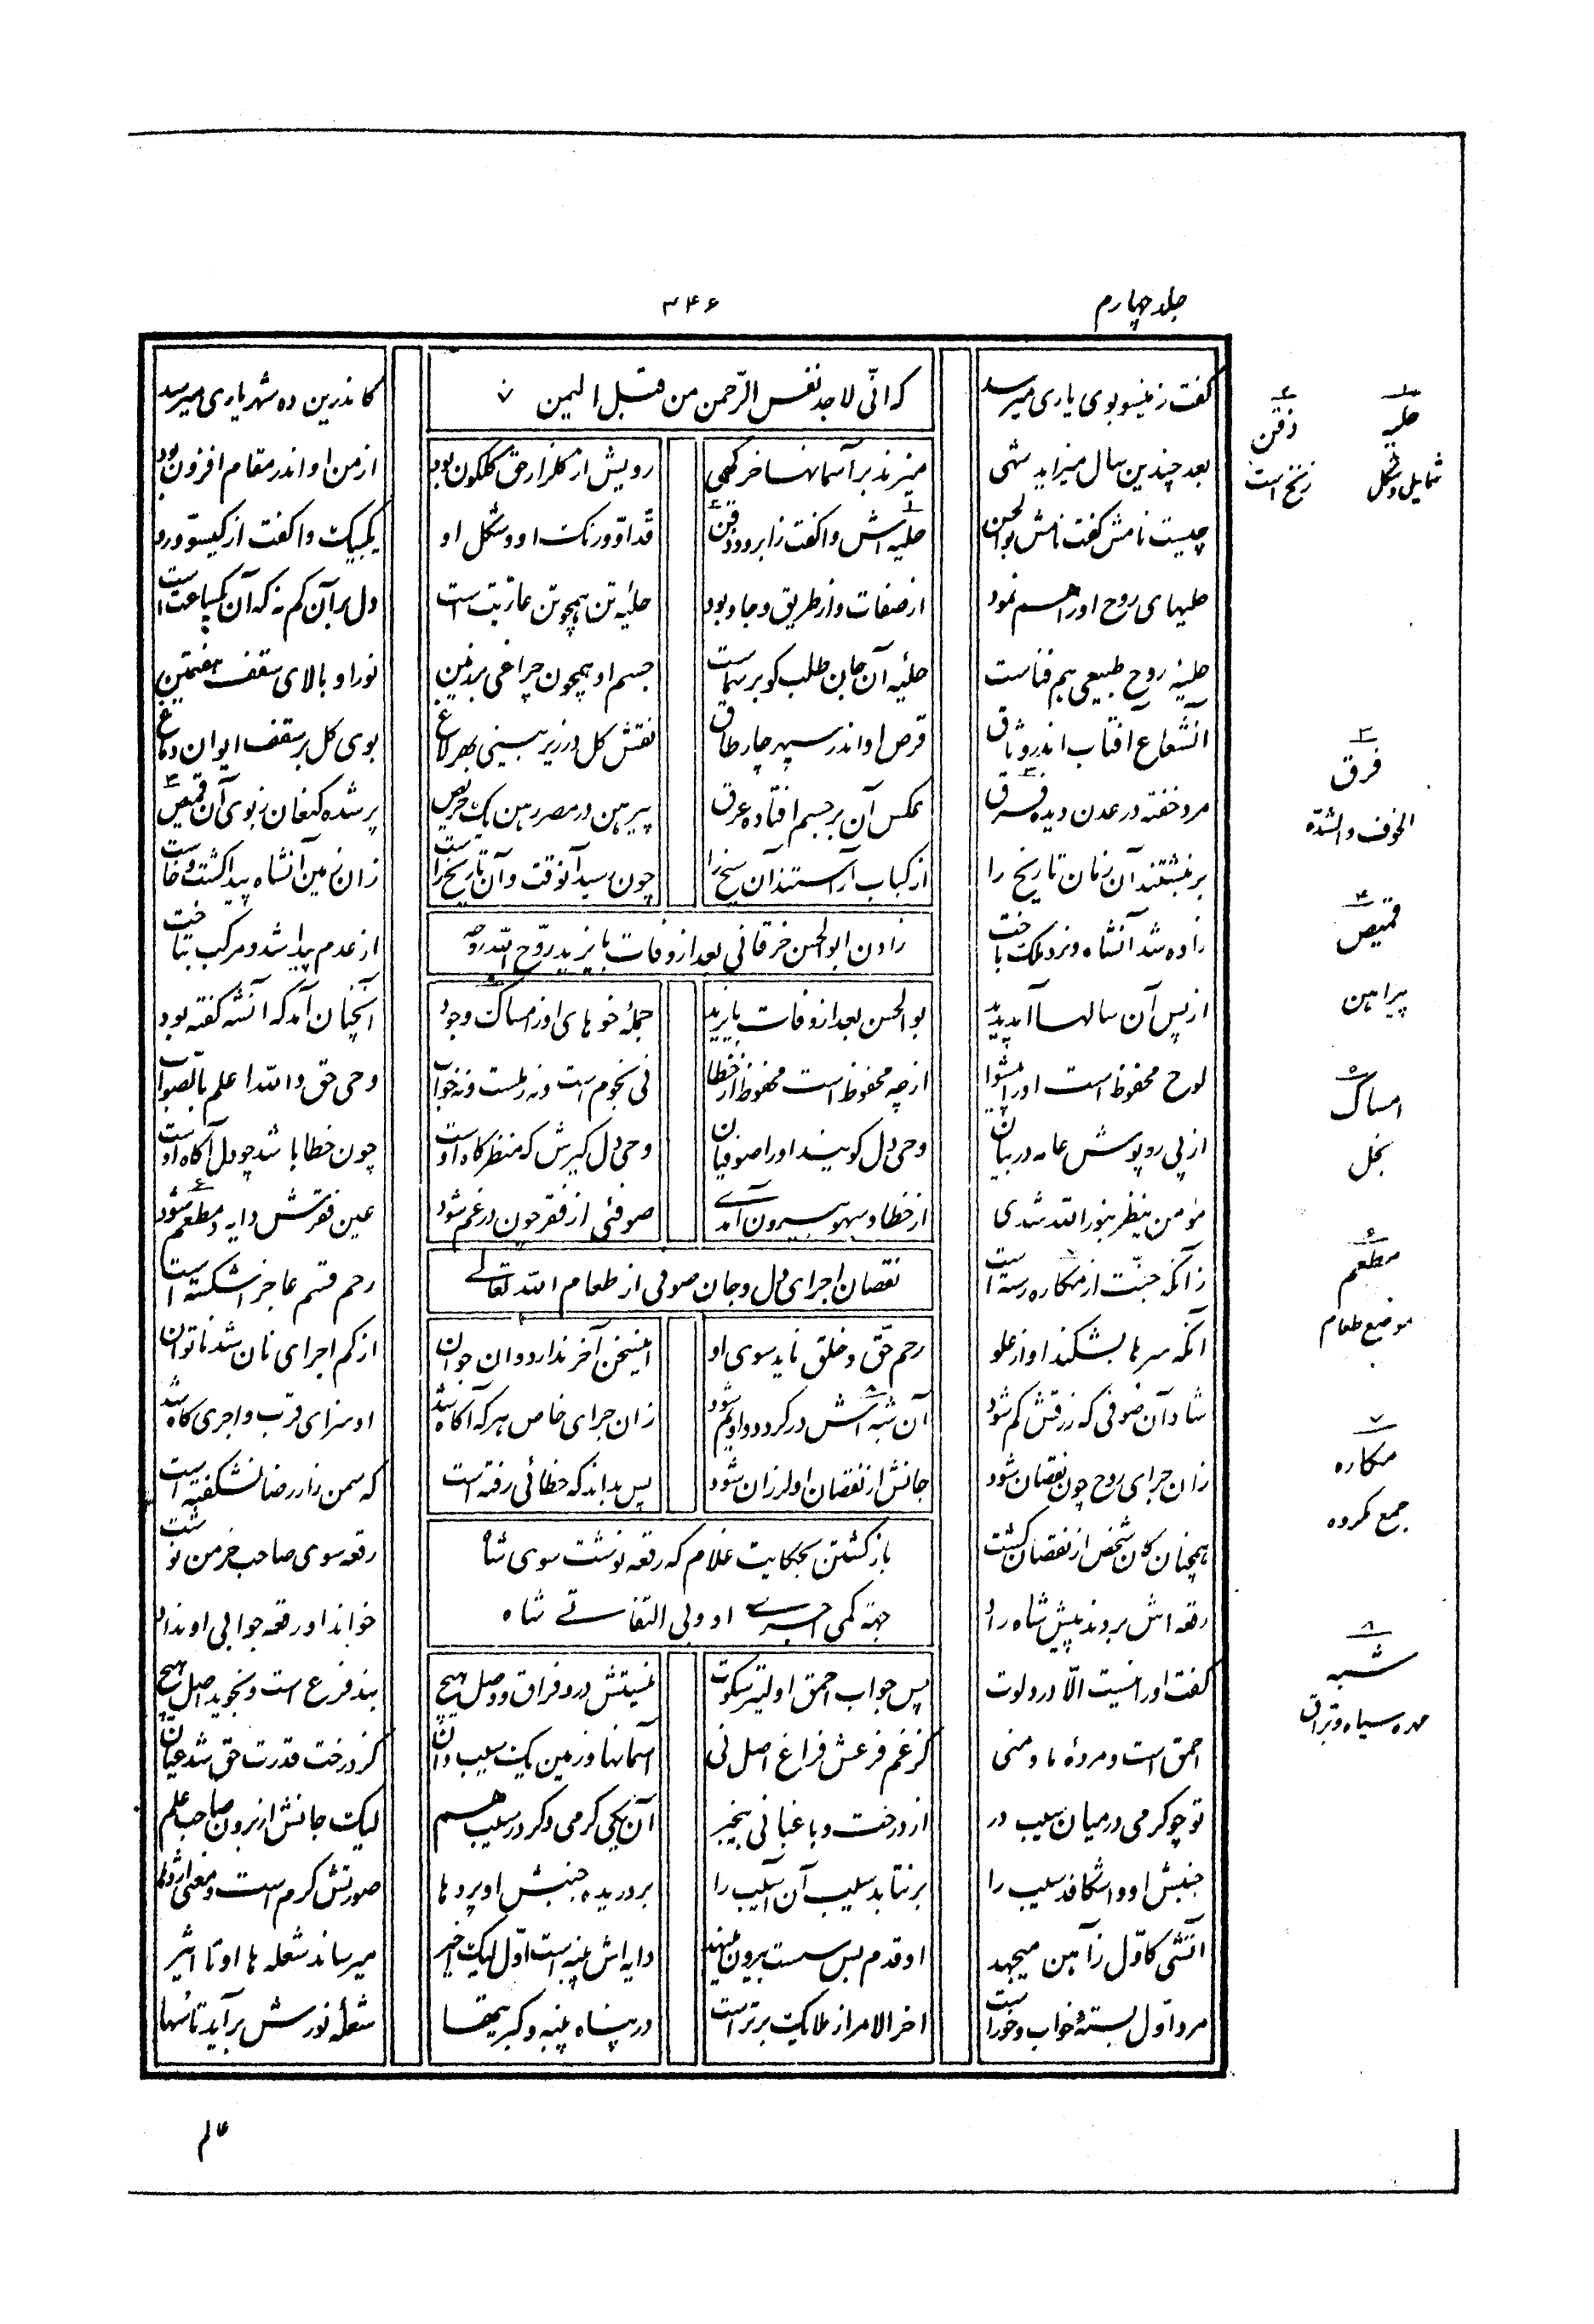 جلد چهارم
۳۴۶
گفت زینسو بوی یاری میرسد
که انّی لاجد نفس الرّحمن من قبل الیمن
کاندرین ده شهریاری میرسد
بعد چندین سال میزاید شهی
میزند بر آسمانها خرگهی
رویش از گلزار حق گلگون بود
از من او اندر مقام افزون بود
چیست نامش گفت نامش بوالحسن
حلیه‌اش واگفت ز ابرو و ذقن
قدّ او و رنگ او و شکل او
یکبیک واگفت از گیسو و رو
حلیهای روح او را هم نمود
از صفات و از طریق و جا و بود
حلیهٔ تن همچو تن عاریتی است
دل بر آن کم نه که آن یکساعت است
حلیهٔ روح طبیعی هم فناست
حلیهٔ آن جان طلب کو بر سماست
جسم او همچون چراغی بر زمین
نور او بالای سقف هفتمین
آنشعاع آفتاب اندر وثاق
قرص او اندر سپهر چار طاق
نقش گل در زیر بینی بهر لاغ
بوی گل بر سقف ایوان دماغ
مرد خفته در عدن دیده فرق
عکس آن بر جسم افتاده عرق
پیرهن در مصر رهن یک حریص
پر شده کنعان ز بوی آن قمیص
برنبشتند آن زمان تاریخ را
از کباب آراستند آن سیخ را
چون رسید آنوقت و آن تاریخ راست
زان زمین آنشاه پیدا گشت و خاست
زاده شد آنشاه و نرد ملک باخت
زادن ابوالحسن خرقانی بعد از وفات بایزید روّح الله روحه
از عدم پیدا شد و مرکب بتاخت
از پس آن سالها آمد پدید
بوالحسن بعد از وفات بایزید
جملهٔ خوهای او ز امساک و جود
آنچنان آمد که آنشه گفته بود
لوح محفوظ است او را پیشوا
از چه محفوظ است محفوظ از خطا
نی نجوم است و نه رملست و نه خواب
وحی حق والله اعلم بالصواب
از پی روپوش عامه در بیان
وحی دل گویند او را صوفیان
وحی دل گیرش که منظرگاه اوست
چون خطا باشد چو دل آگاه اوست
مؤمن ینظر بنور الله شدی
از خطا و سهو بیرون آمدی
صوفئی از فقر چون در غم شود
عین فقرش دایه و مطعم شود
زآنکه جنّت از مکاره رسته است
نقصان اجرای دل و جان صوفی از طعام الله تعالی
رحم قسم عاجز اشکسته است
آنکه سرها بشکند او از علو
رحم حقّ و خلق ناید سوی او
اینسخن آخر ندارد و ان جوان
از کم اجرای نان شد ناتوان
شاد آن صوفی که رزقش کم شود
آن شبه‌اش در گردد و او یم شود
زان جرای خاص هر که آگاه شد
او سزای قرب و اجری گاه شد
زان جرای روح چون نقصان شود
جانش از نقصان او لرزان شود
پس بداند که خطائی رفته است
که سمن زار رضا نشکفته است
همچنان کان شخص از نقصان کشت
بازگشتن بحکایت غلام که رقعه نوشت سوی شاه
رقعه سوی صاحب خرمن نوشت
رقعه‌اش بردند پیش شاه راد
جهة کمی اجری او و بی التفاتی شاه
خواند او رقعه جوابی او نداد
گفت او را نیست الّا درد لوت
پس جواب احمق اولیتر سکوت
نیستش درد فراق و وصل هیچ
بند فرع است و نجوید اصل هیچ
احمق است و مردهٔ ما و منی
کز غم فرعش فراغ اصل نی
آسمانها و زمین یک سیب دان
کز درخت قدرت حق شد عیان
تو چو کرمی در میان سیب در
از درخت و باغبانی بیخبر
آن یکی کرمی دگر در سیب هم
لیک جانش از برون صاحب علم
جنبش او واشکافد سیب را
برنتابد سیب آن آسیب را
بر دریده جنبش او پرده‌ها
صورتش کرم است و معنی اژدها
آتشی کاوّل ز آهن میجهد
او قدم بس سست بیرون مینهد
دایه‌اش پنبه است اوّل لیک اخیر
میرساند شعله‌ها او تا اثیر
مرد اوّل بستهٔ خواب و خور است
آخر الامر از ملایک برتر است
در پناه پنبه و کبریتها
شعلهٔ نورش برآید تا سها
۱
حلیه
شمایل و شکل
۲
ذقن
زنخ است
۳
فرق
الخوف و الشدة
۴
قمیص
پیراهن
۵
امساک
بخل
۶
مطعم
موضع طعام
۷
مکاره
جمع مکروه
۸
شبه
مهره سیاه و براق